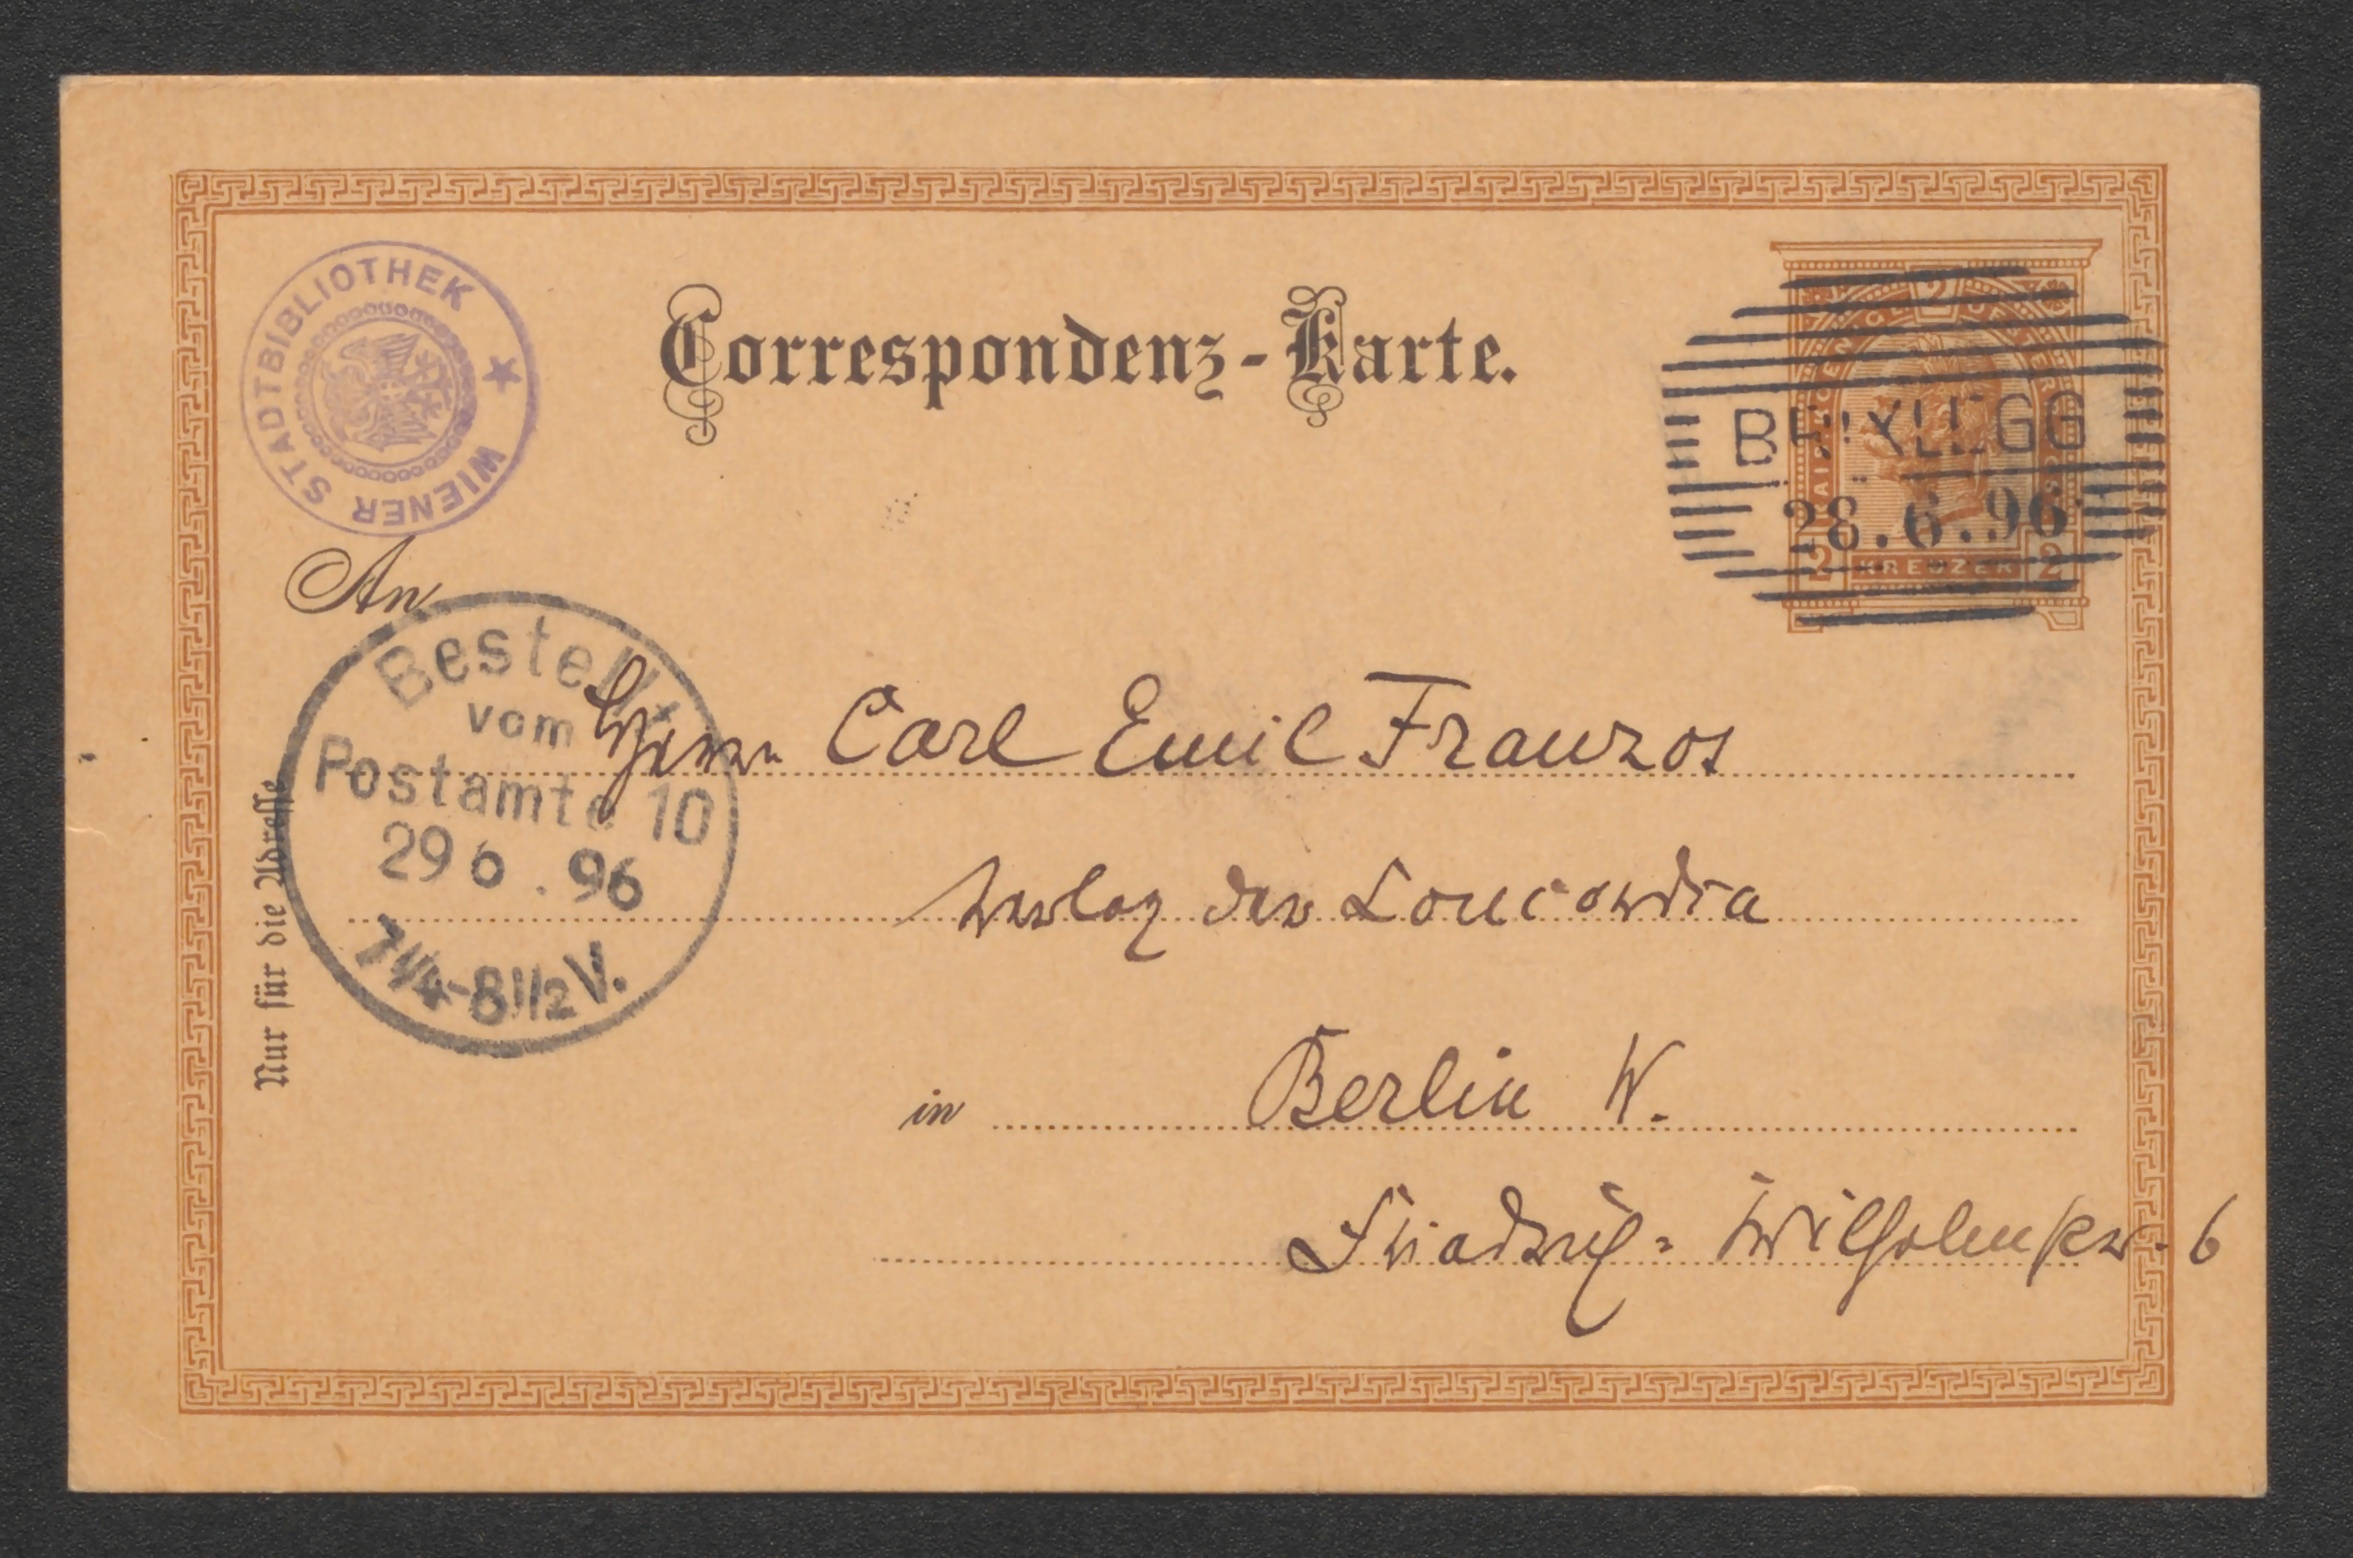 WIENER STADTBIBLIOTHEK
Correspondenz-Karte.
2
BRIXLEGG
28.6.96
2 KREUZER 2
An
Bestellt
vom
Postamte 10
29 6 . 96
7 1/4-8 1/2 V.
Herrn Carl Emil Franzos
Verlag der Concordia
in Berlin W.
Wilhelmstr. 6
Nur für die Adresse